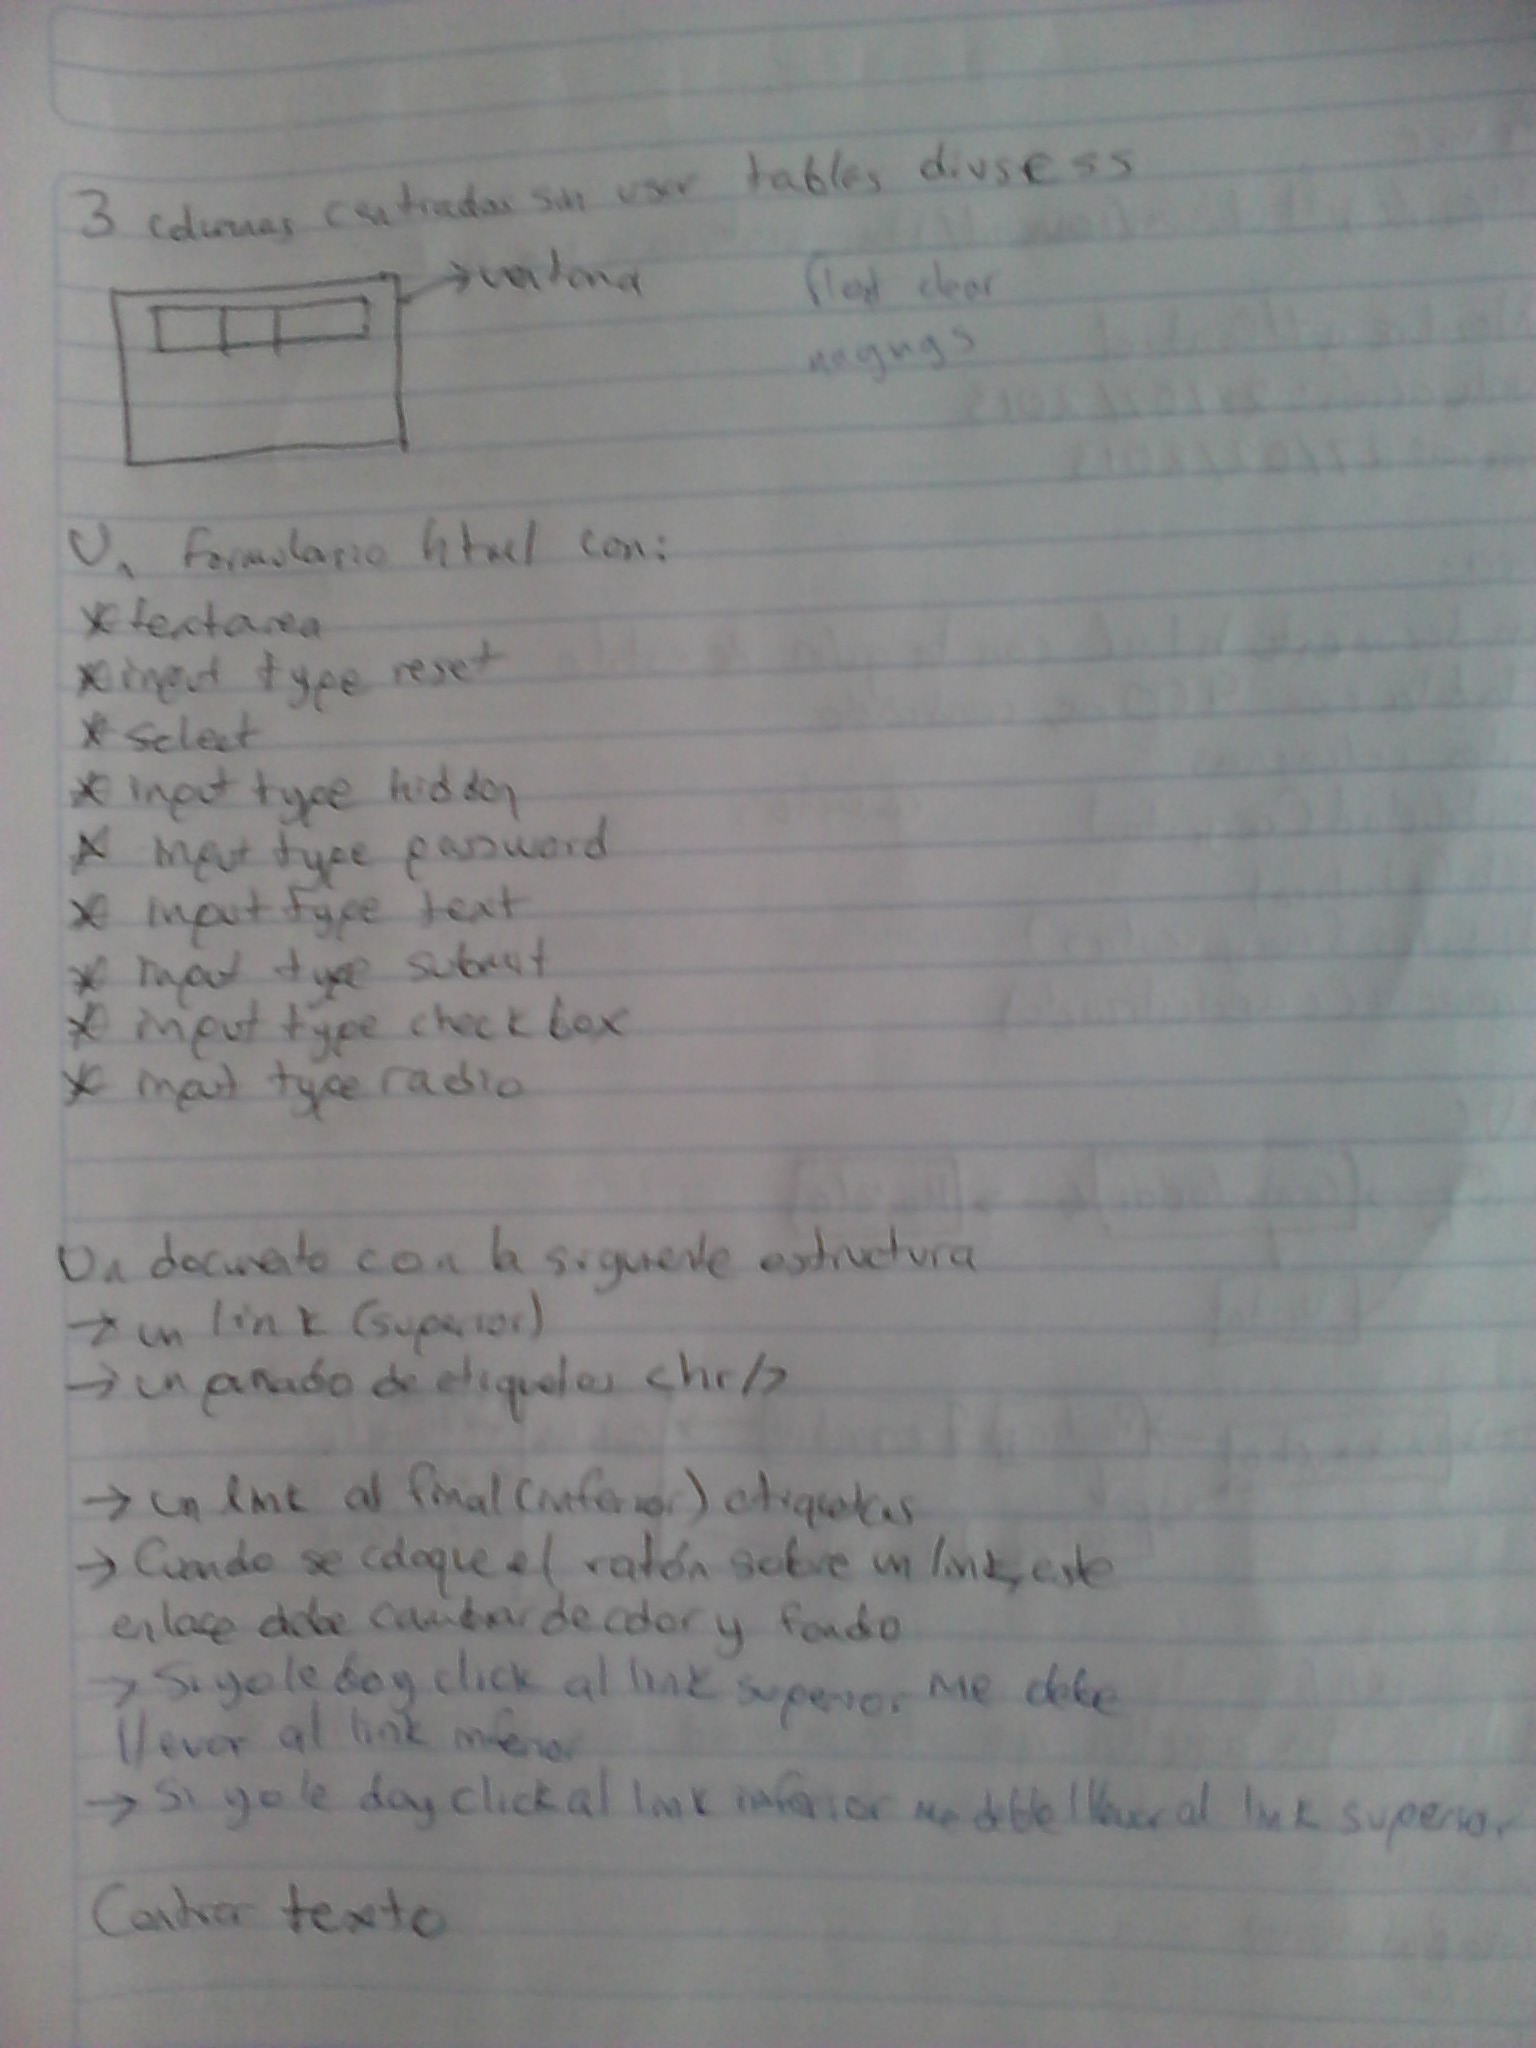 3 columnas centradas sin usar tables divs css
→ ventana
float clear
Un formulario html con:
* textarea
* input type reset
* select
* input type hidden
* input type password
* input type text
* input type submit
* input type checkbox
* input type radio
Un documento con la siguiente estructura
→ un link (superior)
→ un puñado de etiquetas <hr/>
→ un link al final (inferior) etiquetas
→ Cuando se coloque el ratón sobre un link, este
enlace debe cambiar de color y fondo
→ Si yo le doy click al link superior me debe
llevar al link inferior
→ Si yo le doy click al link inferior me debe llevar al link superior.
Centrar texto